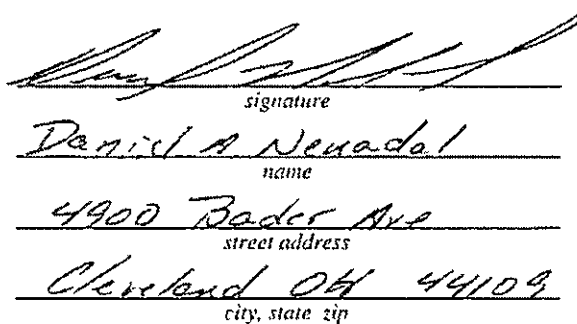 signature
Daniel A Nevadal
name
4900 Bader Ave
street address
Cleveland OH 44109
city, state zip